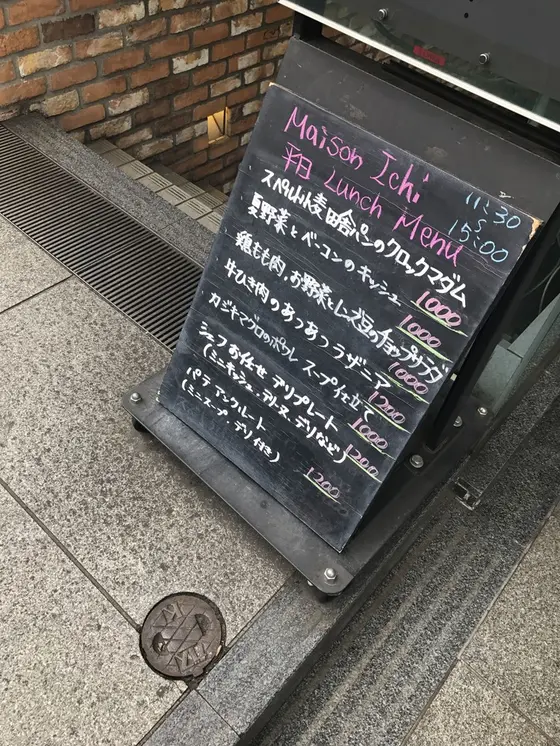 Maison Ichi
平日 Lunch Menu
11:30
15:00
スペルト小麦田舎パンのクロックマダム
1000
夏野菜とベーコンのキッシュ
1000
鶏もも肉、お野菜とレンズ豆のチョップサラダ
1000
牛ひき肉のあつあつラザニア
1200
カジキマグロのポワレ スープ仕立て
1000
シェフお任せ デリプレート
(ミニキッシュ、テリーヌ、デリなど)
1200
パテアンクルート
(ミニスープ・デリ付き)
1200